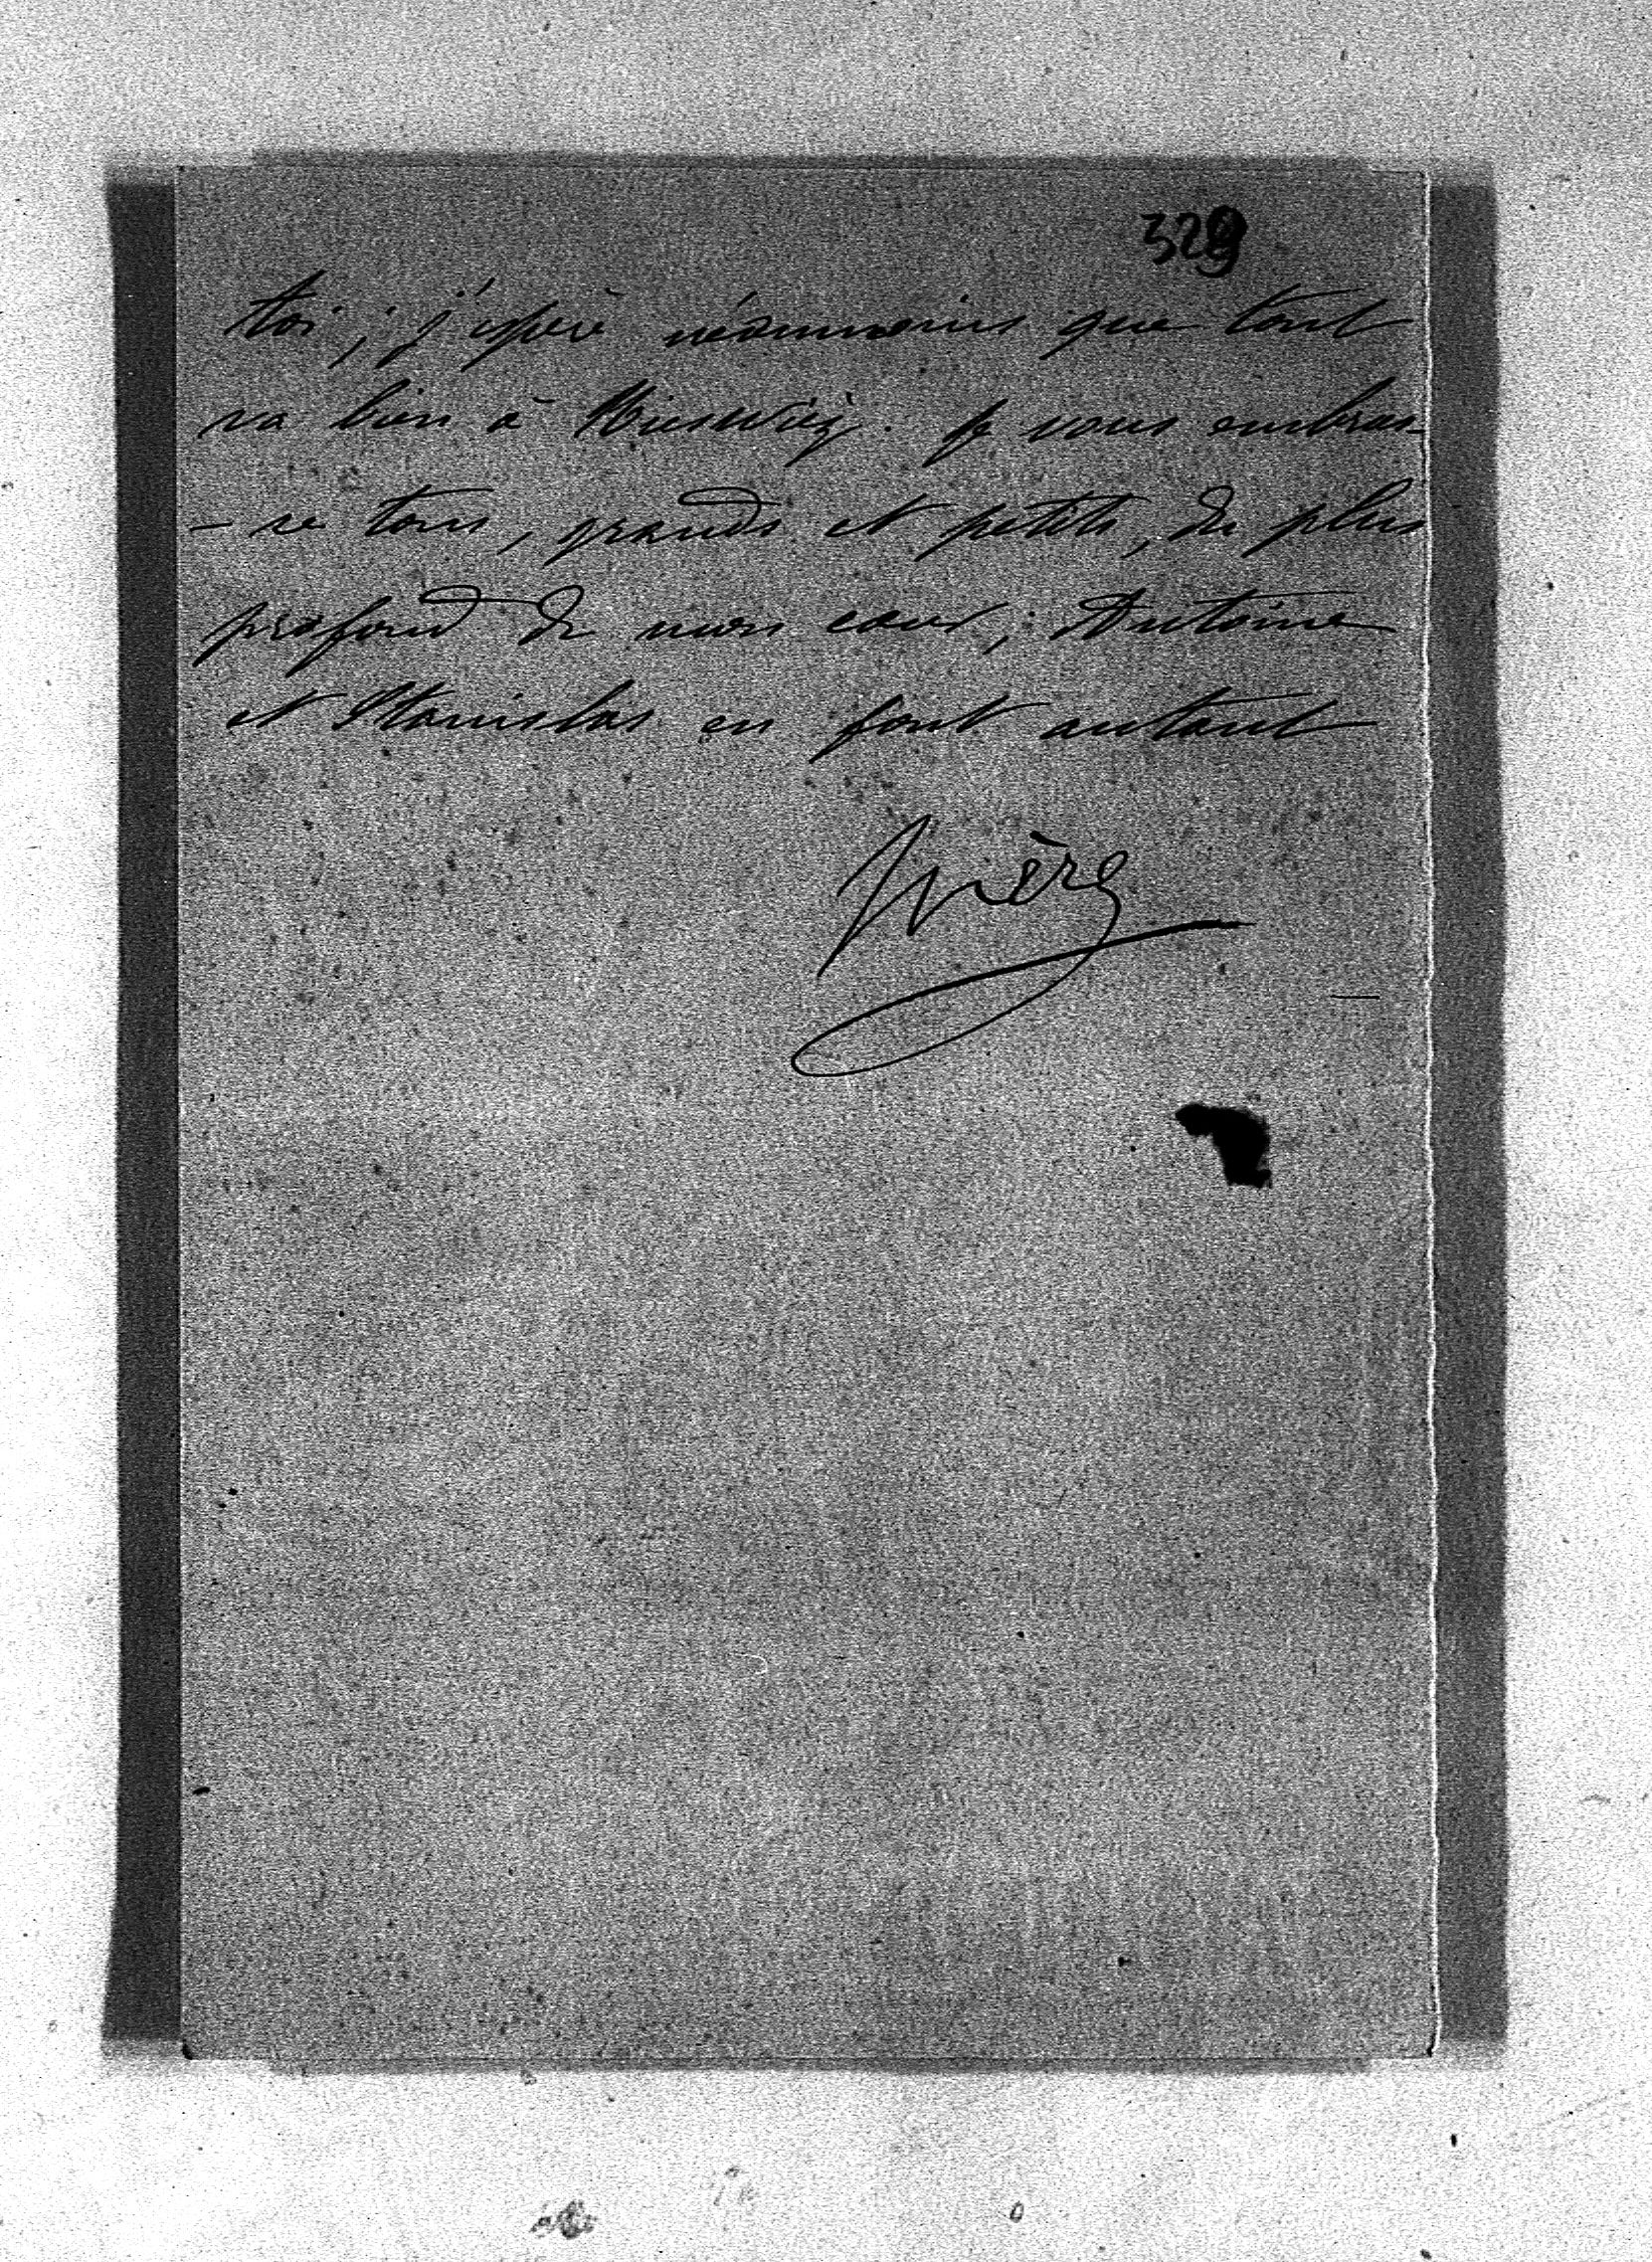 329
toi ; j'espère néanmoins que tout
va bien à Nieswież. Je vous embras-
- se tous, grands et petits, du plus
profond de mon cœur ; Antoine
et Stanislas en font autant
Mère